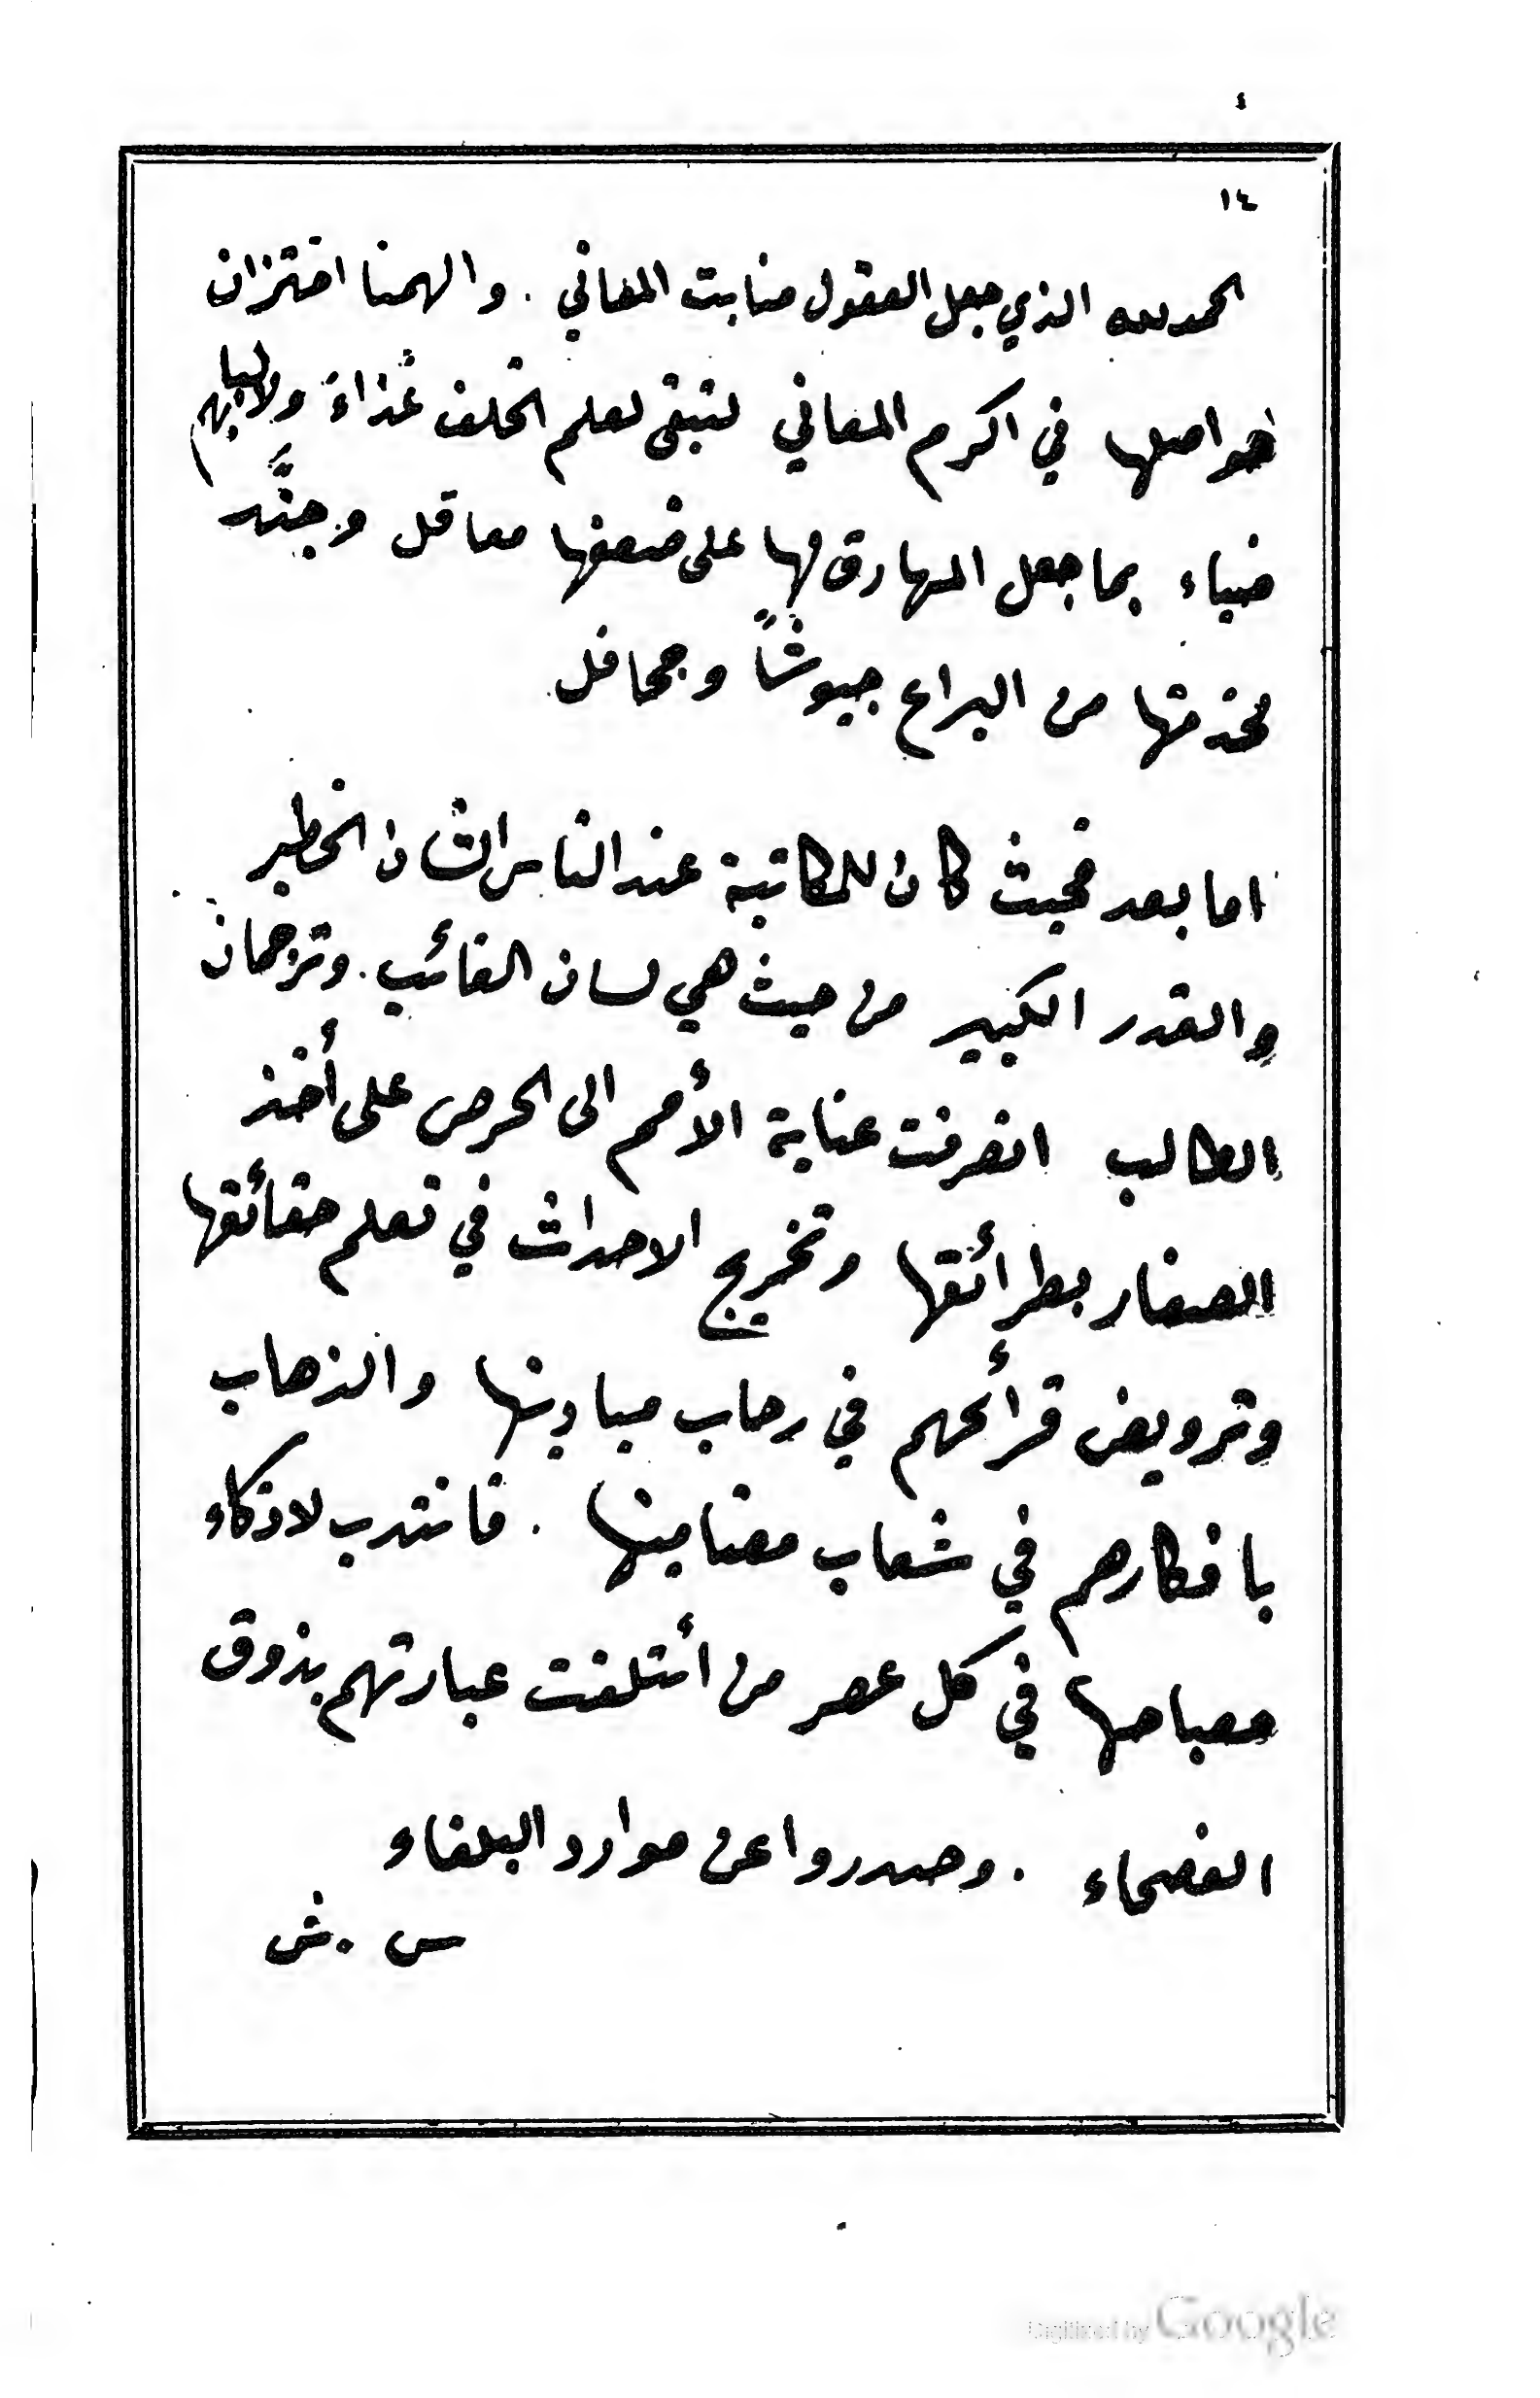 ٤
١٤
الحمد لله الذي جعل العقول منابت المعاني . والهمنا اختزان
حواصلها في اكرم المغاني لتبقى لعلم الخلف غذاءً ولالبابهم
ضياء بما جعل المهارق لها على ضعفها معاقل وجنَّد
لخدمتها من اليراع جيوشاً وجحافل
اما بعد فحيث كان للمكاتبة عند الناس الشان الخطير
والقدر الكبير من حيث هي لسان الغائب . وترجمان
الطالب انصرفت عناية الأمم الى الحرص على أخذ
الصغار بطرائقها وتخريج الاحداث في تعلم حقائقها
وترويض قرائحهم في رحاب ميادينها والذهاب
بافكارهم في شعاب مضامينها . فانتدب لاذكاء
مصباحها في كل عصر من ائتلفت عبارتهم بذوق
الفصحاء . وصدروا عن موارد البلغاء
س . ش
Digitized by Google